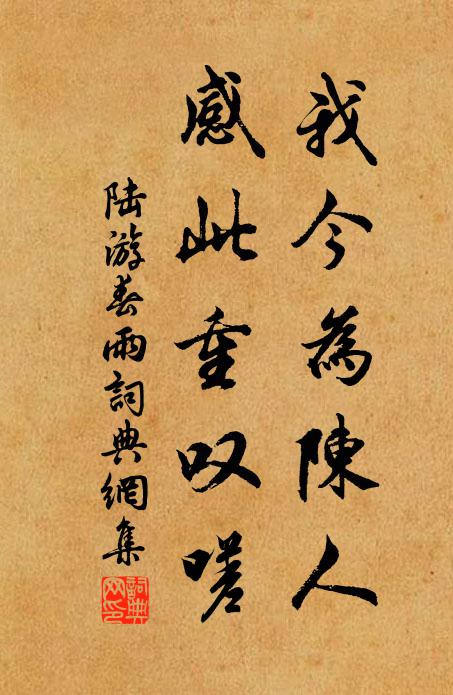 我今為陳人
感此重叹嗟
陆游春雨詞典網集
詞典網印